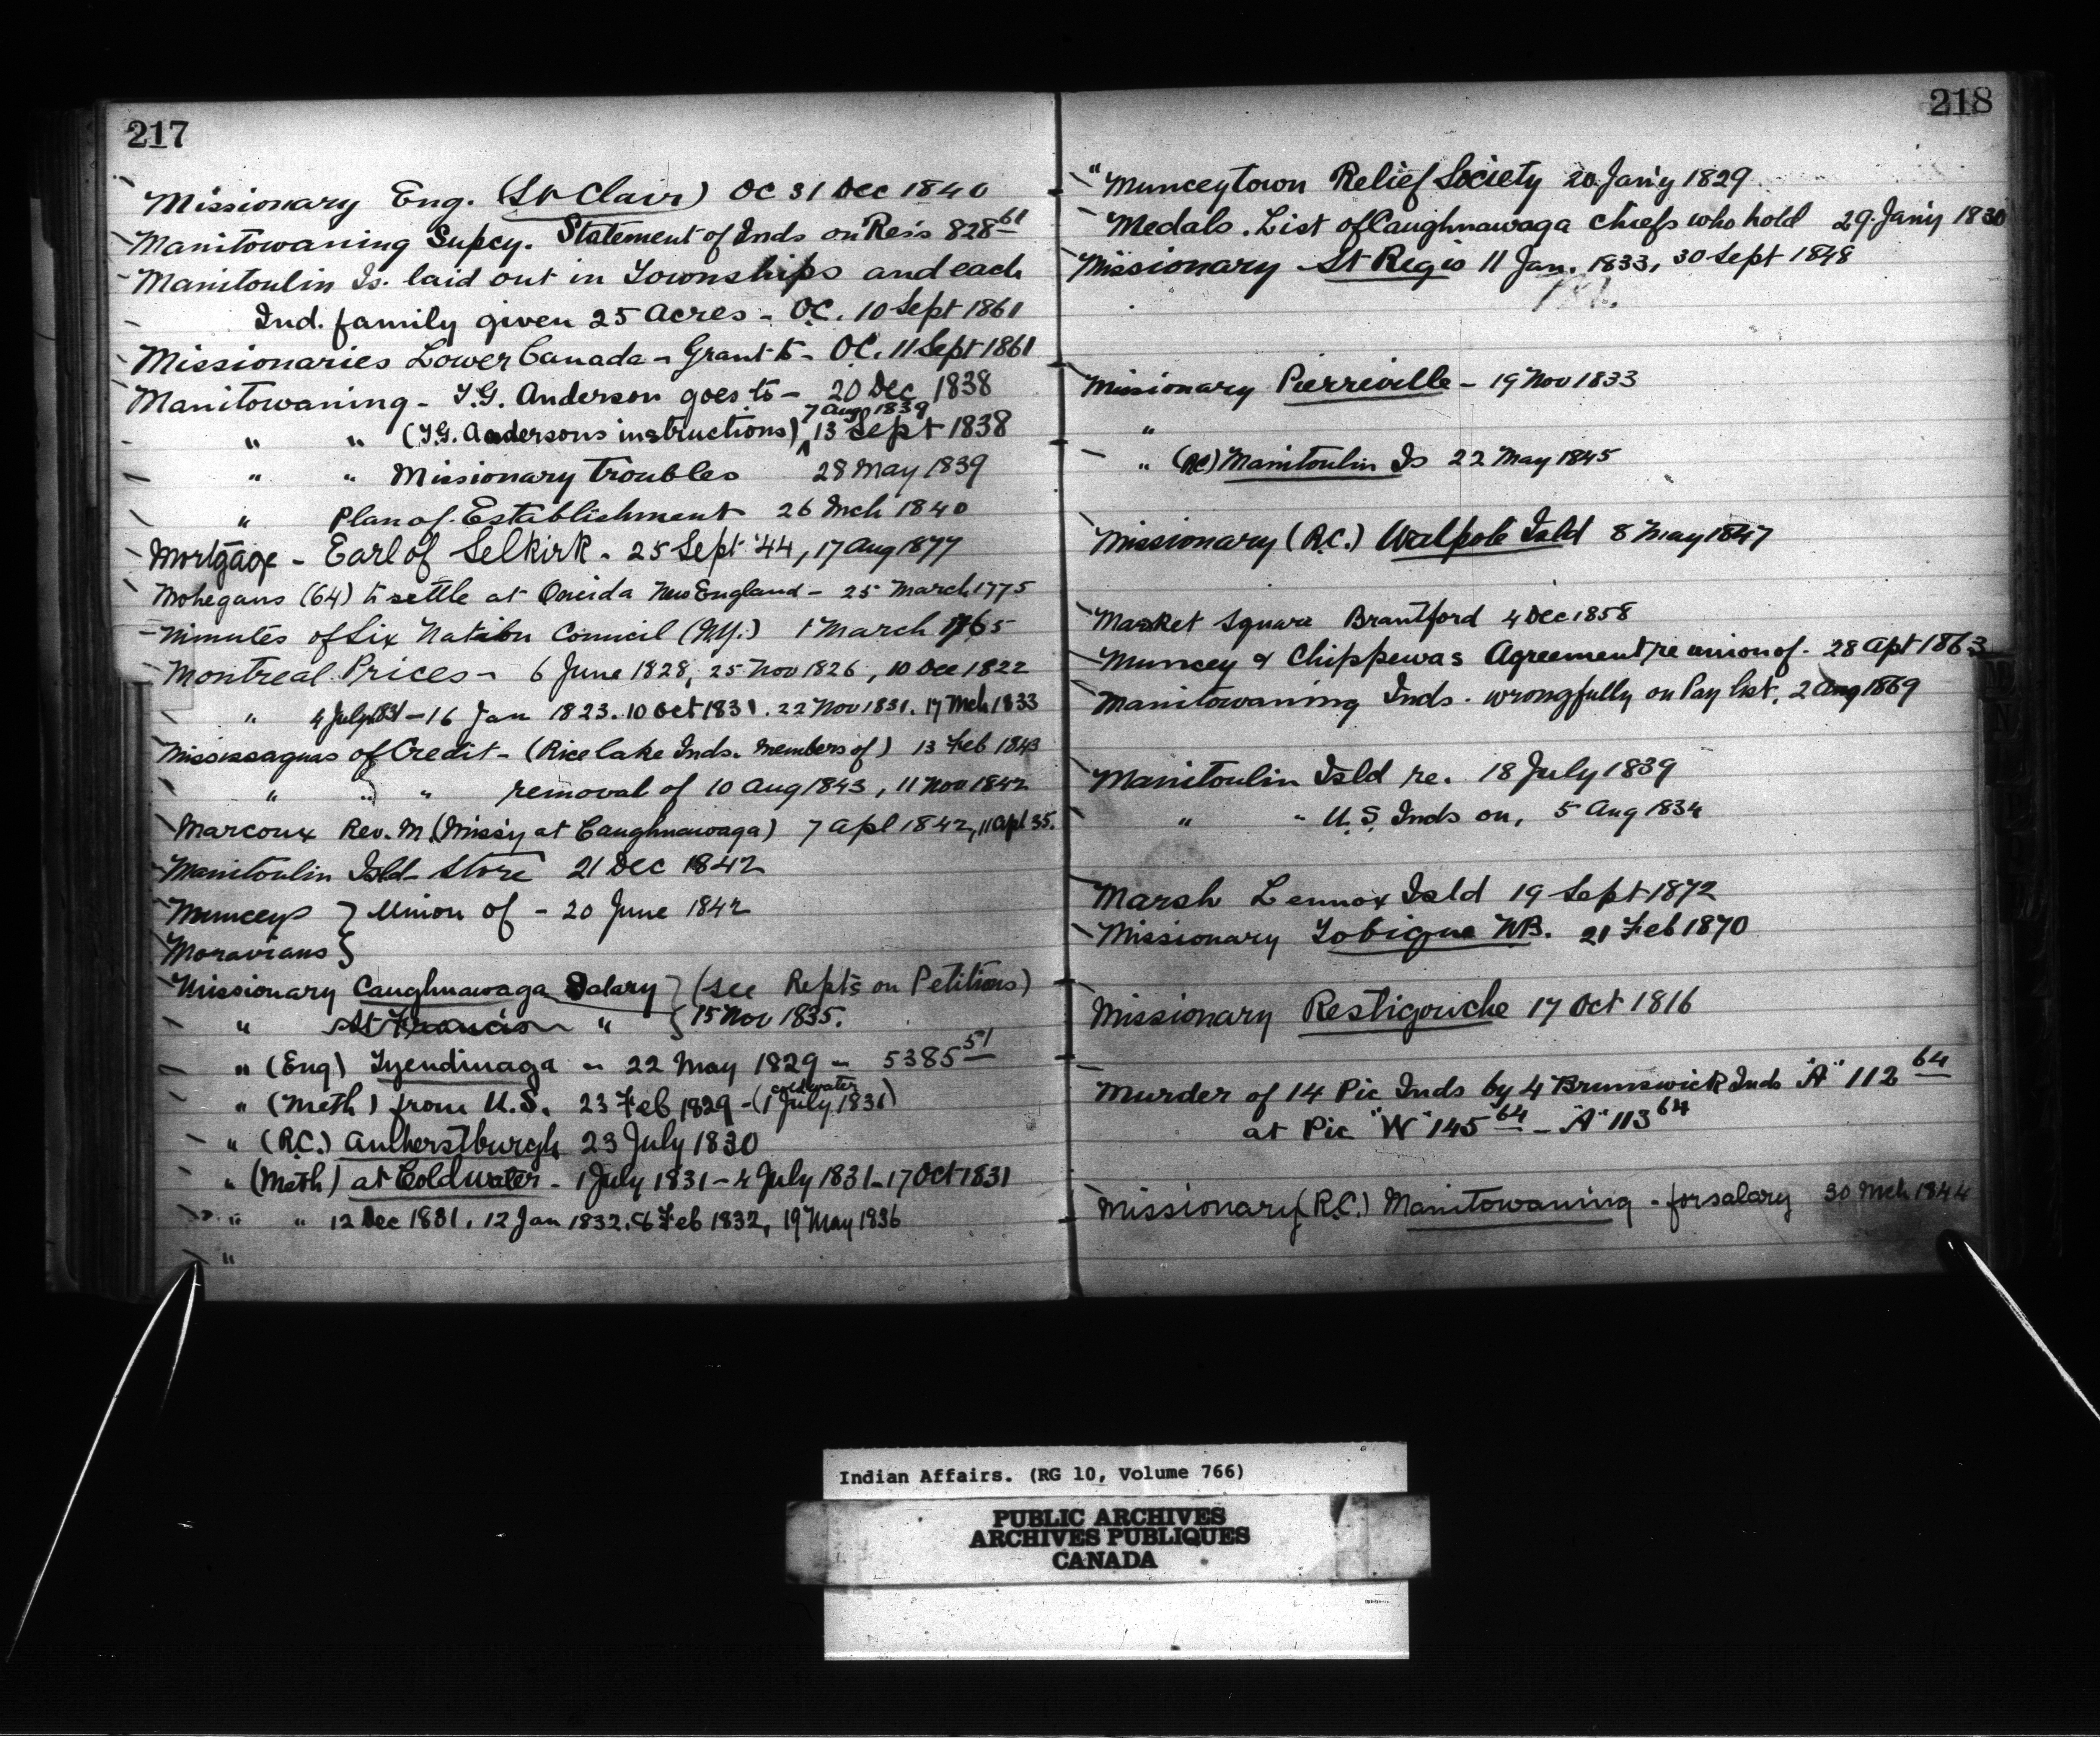 217
Missionary Eng. (St Clair) OC 31 Dec 1840
Manitowaning Supcy. Statement of Inds on Res's 828 61
Manitoulin Is. laid out in Townships and each
Ind. family given 25 Acres - O.C. 10 Sept 1861
Missionaries Lower Canada - Grant to - OC. 11 Sept 1861
Manitowaning - T.G. Anderson goes to - 20 Dec 1838
7 Aug 1839
" " (T.G. Andersons instructions) 13 Sept 1838
" " Missionary troubles 28 May 1839
" Plan of Establishment 26 Mch 1840
Mortgage - Earl of Selkirk - 25 Sept '44, 17 Aug 1877
Mohegans (64) to settle at Oneida New England - 25 March 1775
Minutes of Six Nation Council (N.Y.) 1 March 1765
Montreal Prices - 6 June 1828, 25 Nov 1826, 10 Dec 1822
" 4 July 1831 - 16 Jan 1823. 10 Oct 1831. 22 Nov 1831. 17 Mch 1833
Mississaguas of Credit - (Rice lake Inds. members of) 13 Feb 1843
" " " removal of 10 Aug 1843, 11 Nov 1842
Marcoux Rev. M. (Miss'y at Caughnawaga) 7 Apl 1842, 11 Apl 35.
Manitoulin Isld Store 21 Dec 1842
Munceys } Union of - 20 June 1842
Moravians }
Missionary Caughnawaga Salary } (see Repts on Petitions)
" St Francis " } 15 Nov 1835.
" (Eng) Tyendinaga - 22 May 1829 - 5385 51
coldwater
" (Meth) from U.S. 23 Feb 1829 - (1 July 1831)
" (R.C.) Amherstburgh 23 July 1830
" (Meth) at Coldwater - 1 July 1831 - 4 July 1831 - 17 Oct 1831
" " 12 Dec 1831. 12 Jan 1832. 6 Feb 1832, 19 May 1836
"
218
" Munceytown Relief Society 20 Jan'y 1829
Medals. List of Caughnawaga chiefs who hold 29 Jan'y 1830
Missionary St Regis 11 Jan. 1833, 30 Sept 1848
Missionary Pierreville - 19 Nov 1833
"
" (RC) Manitoulin Is 22 May 1845
Missionary (R.C.) Walpole Isld 8 May 1847
Market Square Brantford 4 Dec 1858
Muncey & Chippewas Agreement re union of - 28 Apt 1863
Manitowaning Inds. wrongfully on Pay list. 2 Aug 1869
Manitoulin Isld re. 18 July 1839
" " U.S. Inds on, 5 Aug 1834
Marsh Lennox Isld 19 Sept 1872
Missionary Tobique NB. 21 Feb 1870
Missionary Restigouche 17 Oct 1816
Murder of 14 Pic Inds by 4 Brunswick Inds "A" 112 64
at Pic "W" 145 64 - "A" 113 64
Missionary (R.C.) Manitowaning - for salary 30 Mch 1844
Indian Affairs. (RG 10, Volume 766)
PUBLIC ARCHIVES
ARCHIVES PUBLIQUES
CANADA